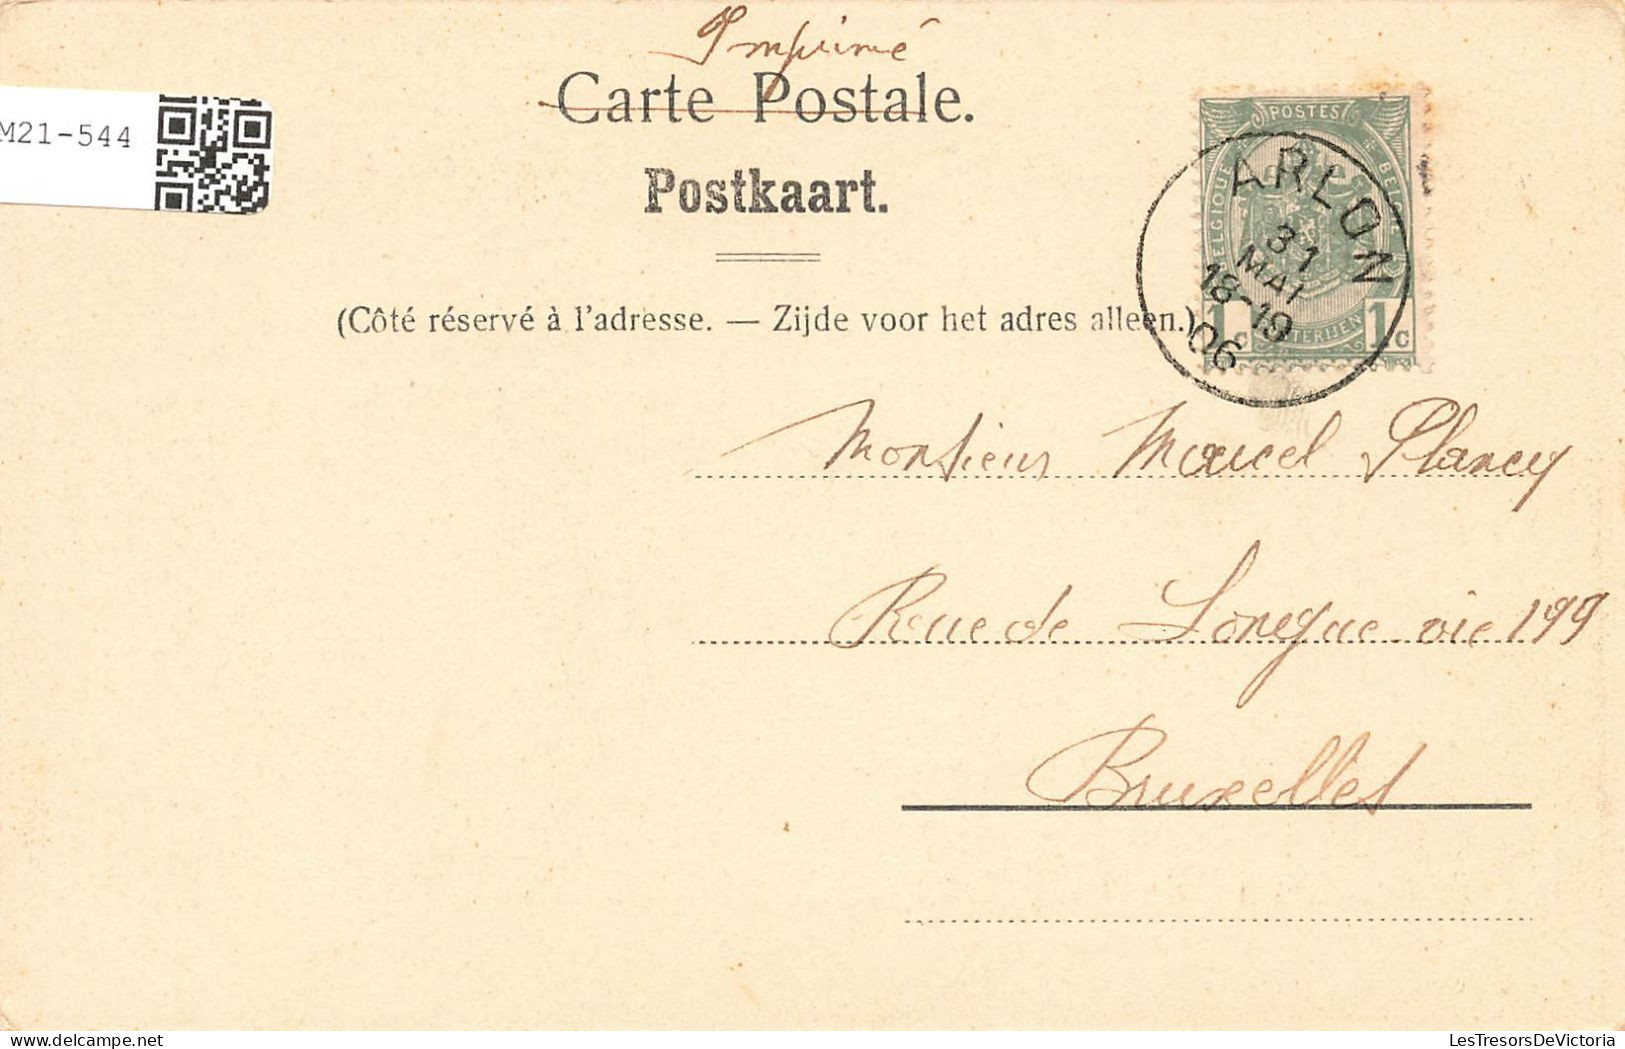 Imprimé
Carte Postale.
Postkaart.
M21-544
(Côté réservé à l'adresse. — Zijde voor het adres alleen.)
POSTES
BELGIQUE
BELGIË
POSTERIJEN
1c
1c
ARLON
31
MAI
18-19
06
Monsieur Marcel Plancy
Rue de Longue vie 199
Bruxelles
LesTresorsDeVictoria